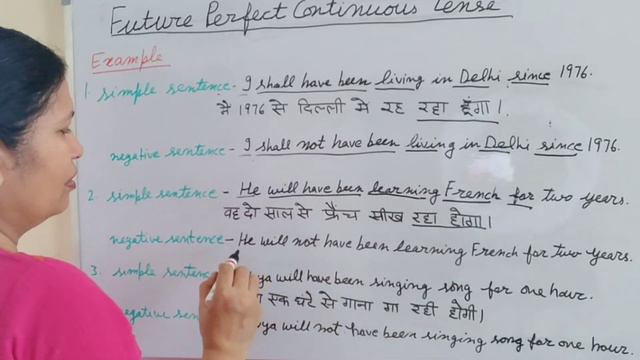 Future Perfect Continuous Tense
Example
1. simple sentence - I shall have been living in Delhi since 1976.
मै 1976 से दिल्ली मे रह रहा हूंगा।
negative sentence - I shall not have been living in Delhi since 1976.
2. simple sentence - He will have been learning French for two years.
वह दो साल से फ्रैंच सीख रहा होगा।
negative sentence - He will not have been learning French for two years.
3. simple will have been singing song for one hour.
घंटे से गाना गा रही होगी।
will not have been singing song for one hour.